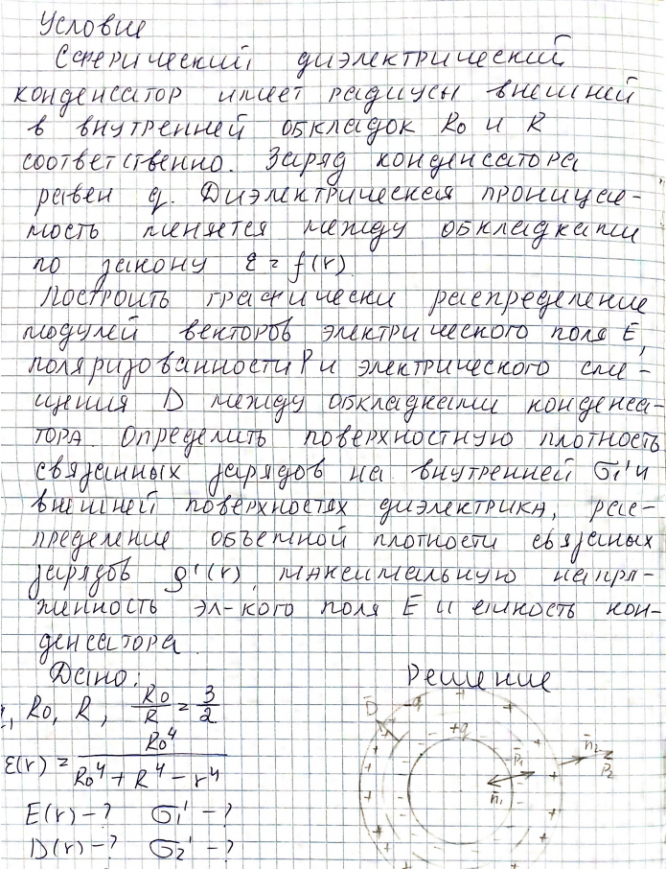 Условие
Сферический диэлектрический
конденсатор имеет радиусы внешней
в внутренней обкладок R₀ и R
соответственно. Заряд конденсатора
равен q. Диэлектрическая проницае-
мость меняется между обкладками
по закону ε = f(r)
Построить графически распределение
модулей векторов электрического поля E,
поляризованности P и электрического сме-
щения D между обкладками конденса-
тора. Определить поверхностную плотность
связанных зарядов на внутренней σ₁' и
внешней поверхностях диэлектрика, рас-
пределение объемной плотности связаных
зарядов ρ'(r), максимальную напря-
женность эл-кого поля E и емкость кон-
денсатора.
Дано: Решение
R₀, R, R₀/R = 3/2
ε(r) = R₀⁴/(R₀⁴ + R⁴ - r⁴)
E(r) - ? σ₁' - ?
D(r) - ? σ₂' - ?
D̄ -q +q n̄₂ P̄₁ P̄₂ n̄₁